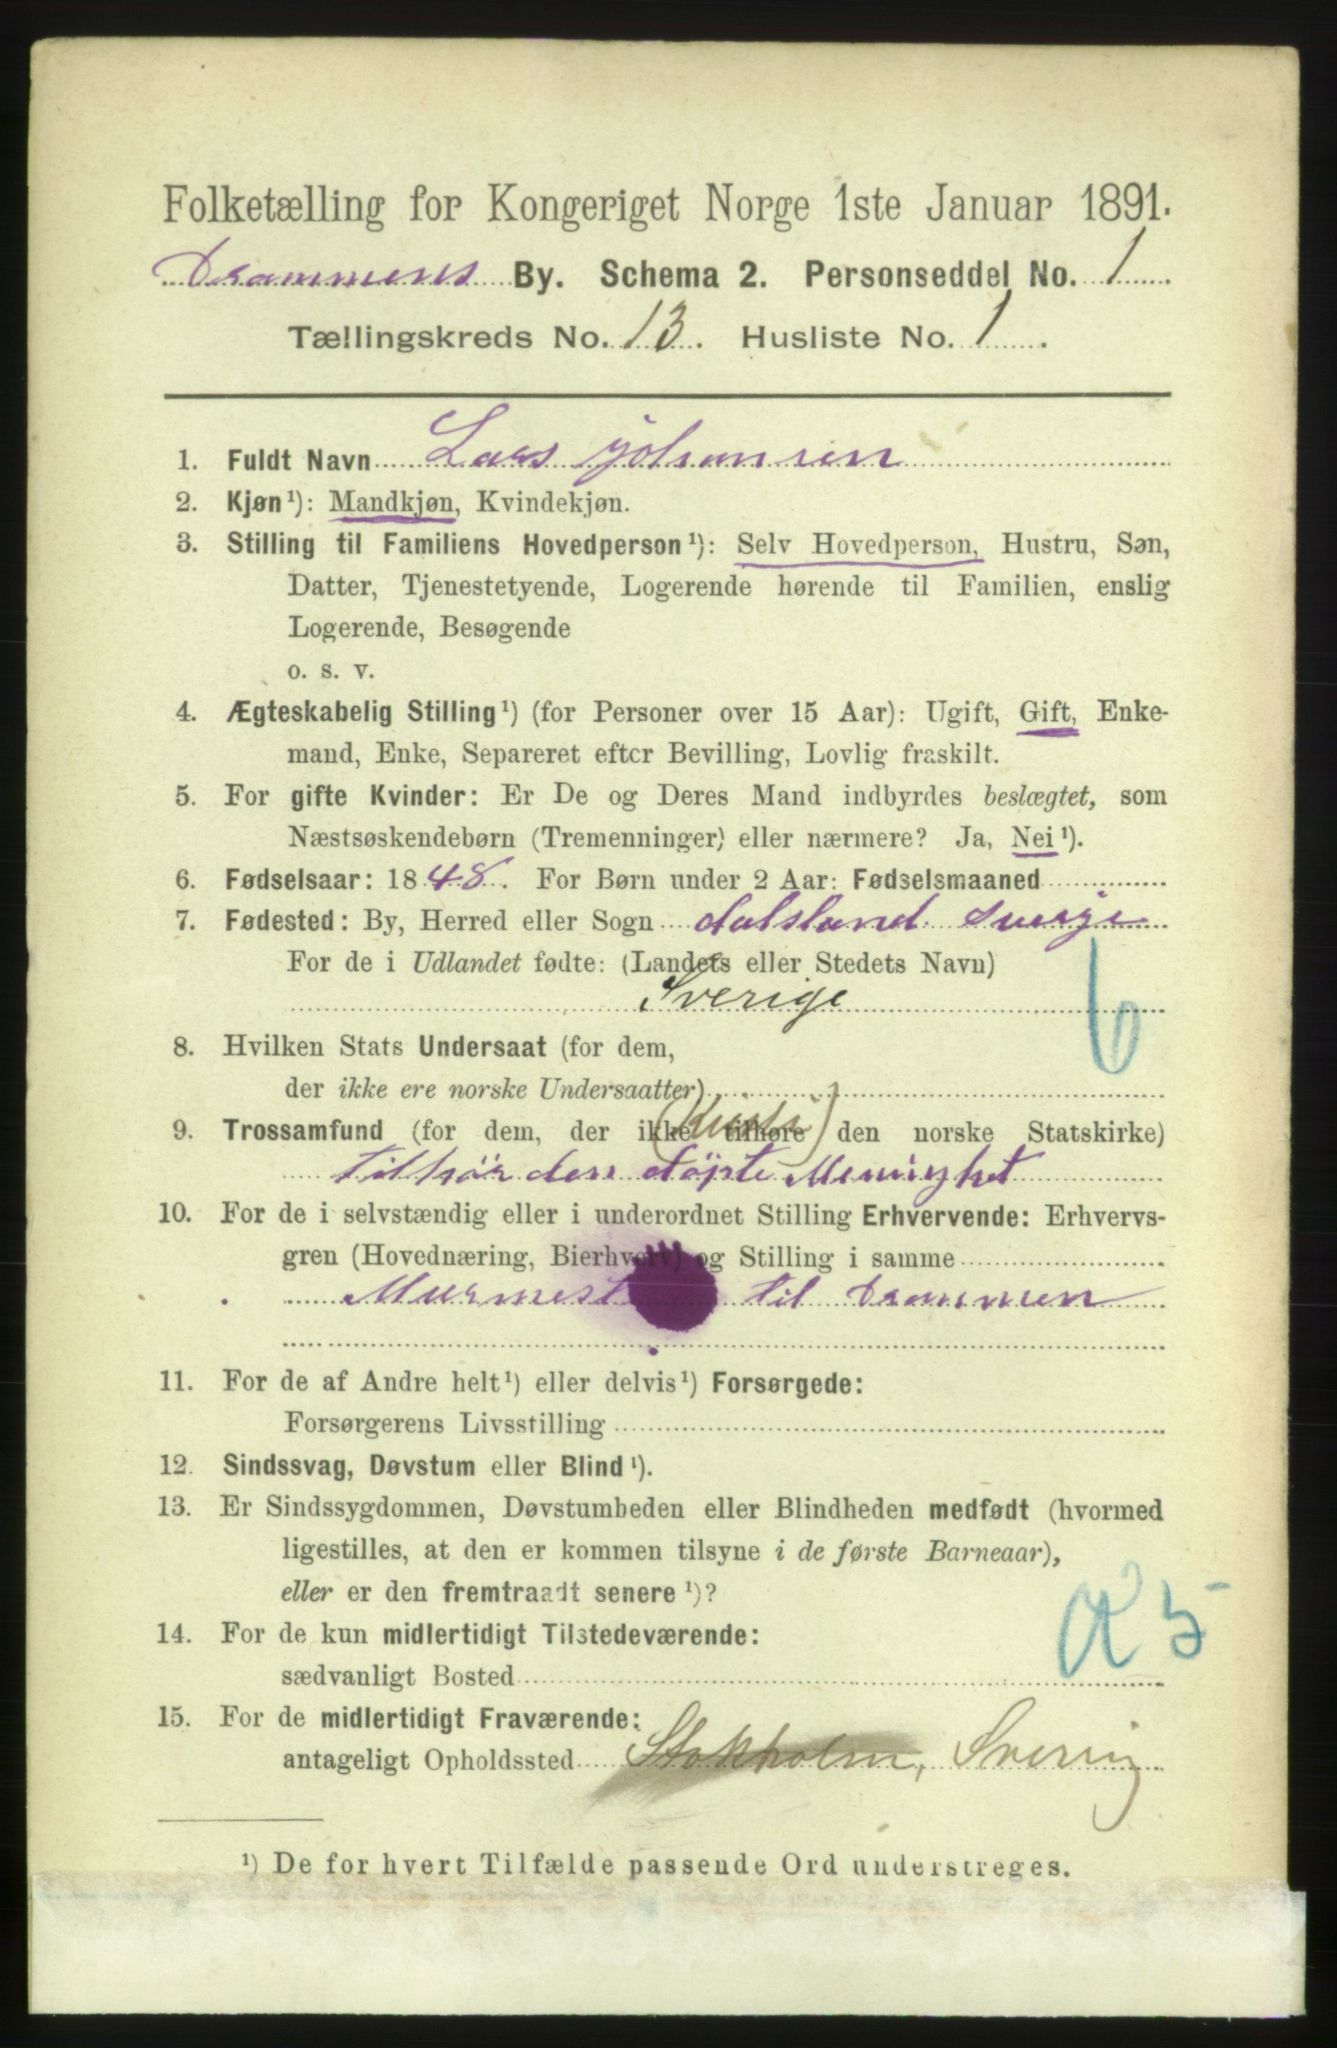 Folketælling for Kongeriget Norge 1ste Januar 1891.
Drammens By. Schema 2. Personseddel No. 1
Tællingskreds No. 13. Husliste No. 1.
1. Fuldt Navn Lars Johansen
2. Kjøn¹): Mandkjøn, Kvindekjøn.
3. Stilling til Familiens Hovedperson¹): Selv Hovedperson, Hustru, Søn,
Datter, Tjenestetyende, Logerende hørende til Familien, enslig
Logerende, Besøgende
o. s. v.
4. Ægteskabelig Stilling¹) (for Personer over 15 Aar): Ugift, Gift, Enke-
mand, Enke, Separeret efter Bevilling, Lovlig fraskilt.
5. For gifte Kvinder: Er De og Deres Mand indbyrdes beslægtet, som
Næstsøskendebørn (Tremenninger) eller nærmere? Ja, Nei¹).
6. Fødselsaar: 1848. For Børn under 2 Aar: Fødselsmaaned
7. Fødested: By, Herred eller Sogn dalsland
For de i Udlandet fødte: (Landets eller Stedets Navn)
Sverige
6
8. Hvilken Stats Undersaat (for dem,
der ikke ere norske Undersaatter)
9. Trossamfund (for dem, der ikke tilhøre den norske Statskirke)
tilhør den døpte Menighet
10. For de i selvstændig eller i underordnet Stilling Erhvervende: Erhvervs-
gren (Hovednæring, Bierhverv) og Stilling i samme
Murmest til Drammen
11. For de af Andre helt¹) eller delvis¹) Forsørgede:
Forsørgerens Livsstilling
12. Sindssvag, Døvstum eller Blind¹).
13. Er Sindssygdommen, Døvstumheden eller Blindheden medfødt (hvormed
ligestilles, at den er kommen tilsyne i de første Barneaar),
eller er den fremtraadt senere¹)?
14. For de kun midlertidigt Tilstedeværende:
sædvanligt Bosted
15. For de midlertidigt Fraværende:
antageligt Opholdssted Stokholm, Sverig
¹) De for hvert Tilfælde passende Ord understreges.